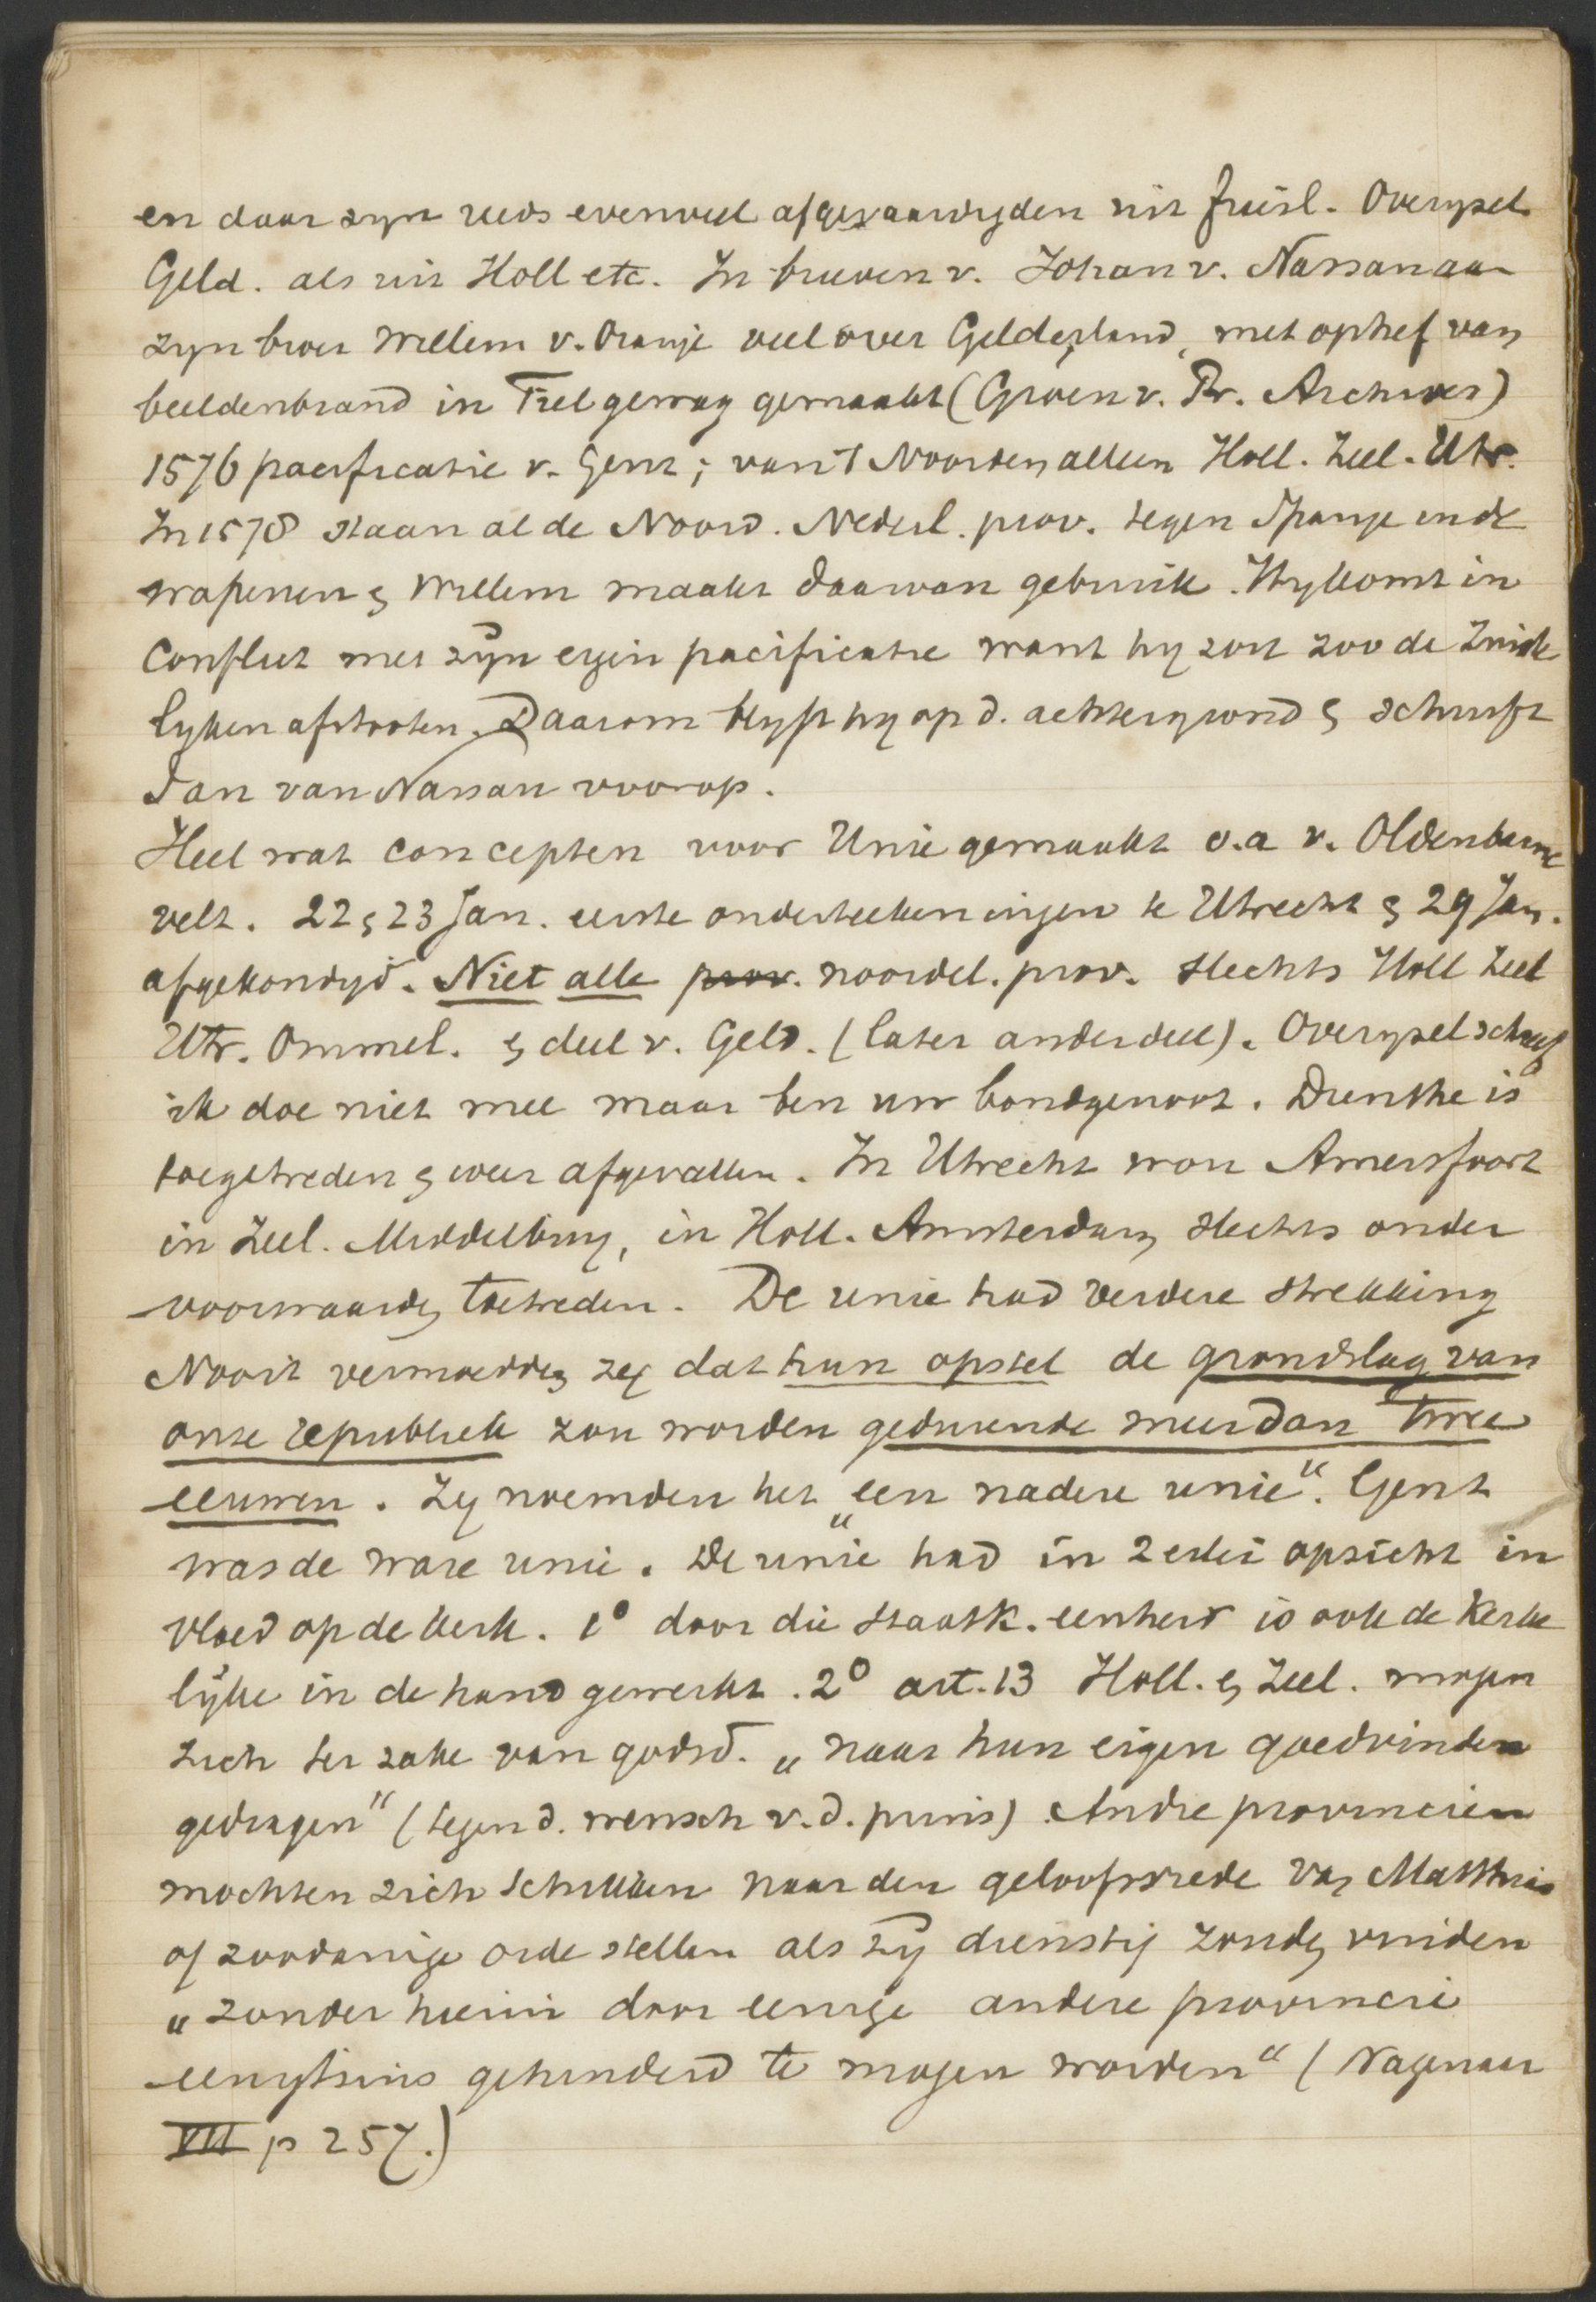 en daar zyn reeds evenveel afgevaardigden uit Friesl. Overysel
Geld. als uit Holl etc. In brieven v. Johan v. Nassau aan
zyn broer Willem v. Oranje veel over Gelderland, met ophef van
beeldenbrand in Tiel gewag gemaakt (Groen v. Pr. Archives)
1576 pacificatie v. Gent; van 't Noorden alleen Holl. Zeel. Utr.
In 1578 staan al de Noord. Nederl. prov. tegen Spanje in de
wapenen & Willem maakt daarvan gebruik. Hy komt in
Conflict met zyn eigen pacificatie want hy zou zoo de Zuide
lyken afstooten. Daarom blyft hy op d. achtergrond & schuift
Jan van Nassau voorop.
Heel wat concepten voor Unie gemaakt o.a v. Oldenbarne
velt. 22 & 23 Jan. eerste onderteekeningen te Utrecht & 29 Jan.
afgekondigd. Niet alle prov. noordel. prov. slechts Holl Zeel
Utr. Ommel. & deel v. Geld. (later ander deel). Overysel schreef
ik doe niet mee maar ben uw bondgenoot. Drenthe is
toegetreden & weer afgevallen. In Utrecht wou Amersfoort
in Zeel. Middelburg, in Holl. Amsterdam slechts onder
voorwaarden toetreden. De unie had verdere strekking
Nooit vermoedden zy dat hun opstel de grondslag van
onze republiek zou worden gedurende meer dan twee
eeuwen. Zy noemden het „een nadere unie“. Gent
was de ware unie. De unie had in 2erlei opzicht in
vloed op de kerk. 1º door die staatk. eenheid is ook de Kerke
lyke in de hand gewerkt. 2º art. 13 Holl. & Zeel. mogen
zich ter zake van godsd. „naar hun eigen goedvinden
gedragen“ (tegen d. wensch v. d. prins) Andre provincien
mochten zich schikken naar den geloofsvrede van Matthias
of zoodanige orde stellen als zy dienstig zouden vinden
„zonder hierin door eenige andere provincie
eenigszins gehinderd te mogen worden“ (Wagenaar
VII p 257.)